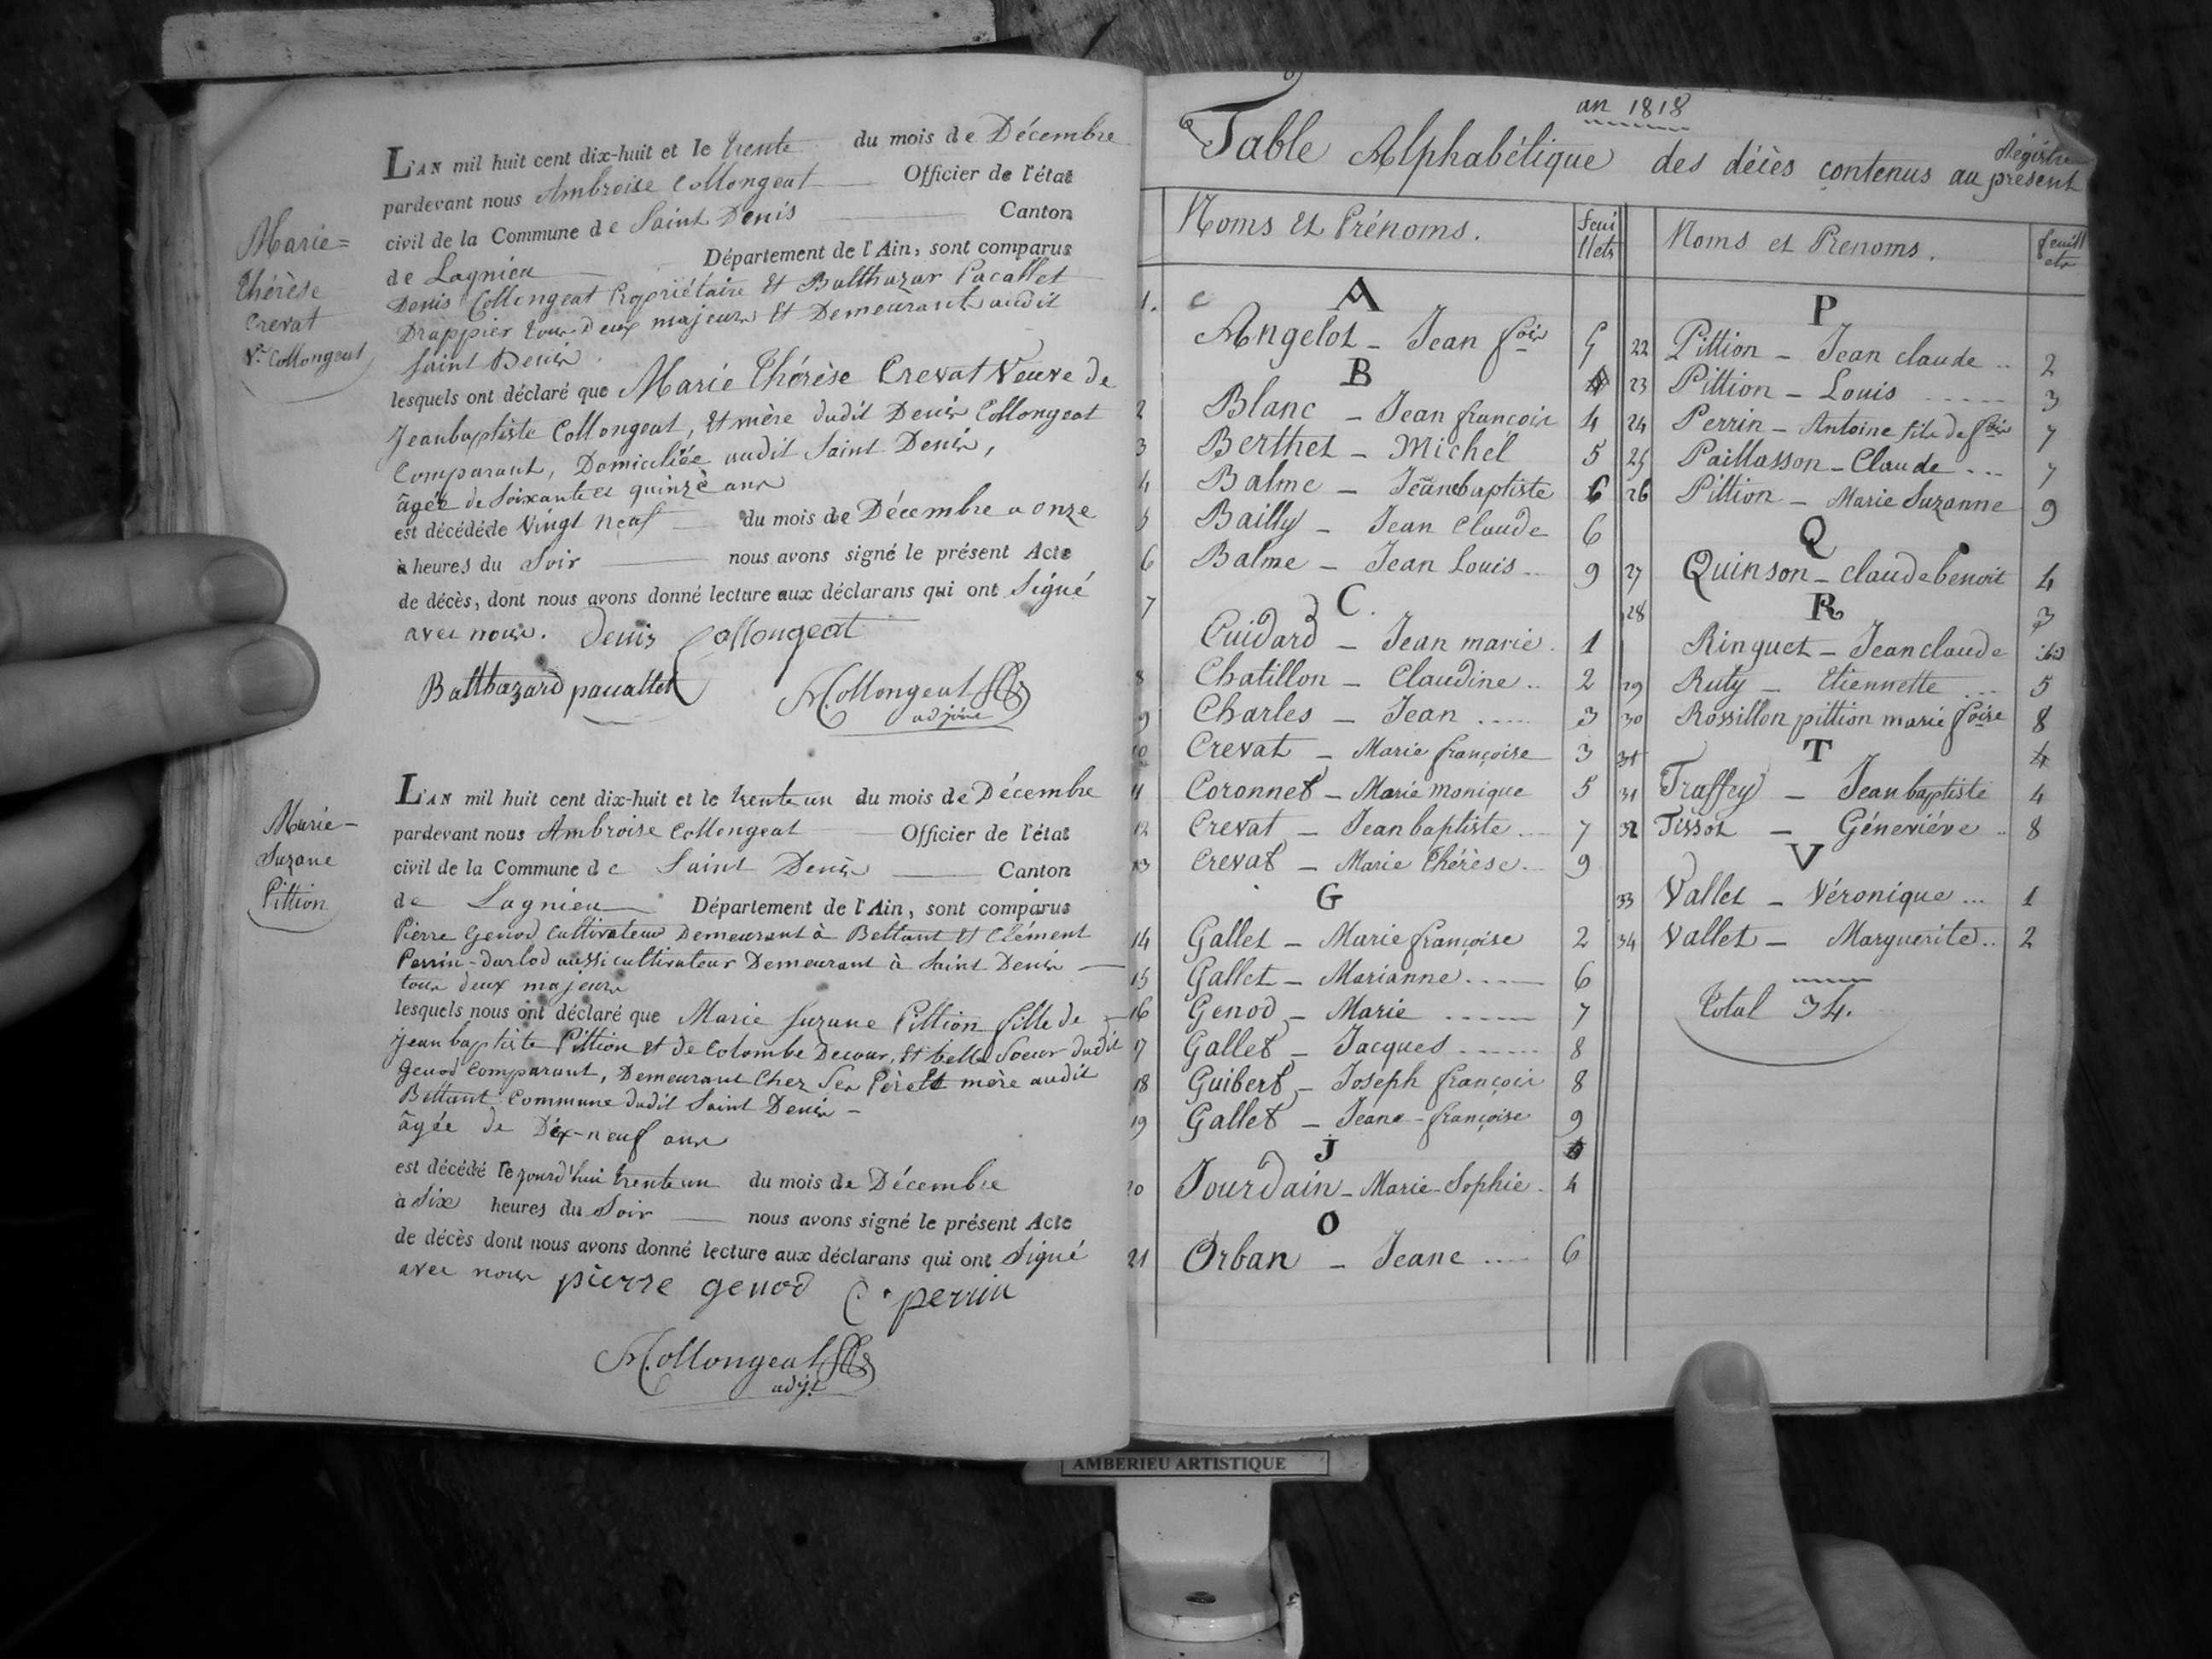 Marie=
Thérèse
Crevat
Vᵉ Collongeat
L'AN mil huit cent dix-huit et le trente du mois de Décembre
pardevant nous Ambroise Collongeat Officier de l'état
civil de la Commune de Saint Denis Canton
de Lagnieu Département de l'Ain, sont comparus
Denis Collongeat Propriétaire et Balthazar Pacallet
Drappier tous deux majeurs et Demeurants audit
Saint Denis
lesquels ont déclaré que Marie Thérèse Crevat Veuve de
Jeanbaptiste Collongeat, et mère dudit Denis Collongeat
Comparant, Domiciliée audit Saint Denis,
âgée de Soixante et quinze ans
est décédéde Vingt neuf du mois de Décembre a onze
à heures du Soir nous avons signé le présent Acte
de décès, dont nous avons donné lecture aux déclarans qui ont Signé
avec nous. Denis Collongeat
Balthazard pacallet A. Collongeat
adjoint
Marie-
Suzane
Pittion
L'AN mil huit cent dix-huit et le trente un du mois de Décembre
pardevant nous Ambroise Collongeat Officier de l'état
civil de la Commune de Saint Denis Canton
de Lagnieu Département de l'Ain, sont comparus
Pierre Genod Cultivateur Demeurant à Bettant et Clément
Perrin-Darlod aussi cultivateur Demeurant à Saint Denis
tous deux majeurs
lesquels nous ont déclaré que Marie Suzane Pittion fille de
jean baptiste Pittion et de Colombe Decour, et belle Soeur dudit
Genod Comparant, Demeurant Chez Ses Père et mère audit
Bettant Commune dudit Saint Denis -
âgée de Dix-neuf ans
est décédé le jourd'hui trente un du mois de Décembre
à Six heures du Soir nous avons signé le présent Acte
de décès dont nous avons donné lecture aux déclarans qui ont Signé
avec nous pierre genod C. perrin
A. Collongeat
adjt
an 1818
Table Alphabétique des décès contenus au présent Régistre
Noms et Prénoms. feuillets
A
1. Angelot - Jean fois 5
B
2 Blanc - Jean françois 4
3 Berthet - Michel 5
4 Balme - Jeanbaptiste 6
5 Bailly - Jean Claude 6
6 Balme - Jean Louis .. 9
C.
7 Cuidard - Jean marie . 1
8 Chatillon - Claudine .. 2
9 Charles - Jean ..... 3
10 Crevat - Marie françoise 3
11 Coronnet - Marie monique 5
12 Crevat - Jean baptiste .... 7
13 Crevat - Marie thérèse ... 9
G
14 Gallet - Marie françoise 2
15 Gallet - Marianne ..... 6
16 Genod - Marie ...... 7
17 Gallet - Jacques ...... 8
18 Guibert - Joseph françois 8
19 Gallet - Jeane - françoise 9
J
20 Jourdain - Marie-Sophie . 4
O
21 Orban - Jeane .... 6
Noms et Prenoms. feuillets
P
22 Pittion - Jean claude .. 2
23 Pittion - Louis ..... 3
24 Perrin - Antoine fils de fois 7
25 Paillasson - Claude ... 7
26 Pittion - Marie Suzanne 9
Q
27 Quinson - claude benoit 4
28 R 3
Ringuet - Jean claude ibid
29 Ruty - Etiennette ... 5
30 Rossillon pittion marie foise 8
T
31 Truffey - Jean baptiste 4
32 Tissot - Géneviéve .. 8
V
33 Vallet - Véronique ... 1
34 Vallet - Marguerite .. 2
Total 34.
AMBERIEU ARTISTIQUE